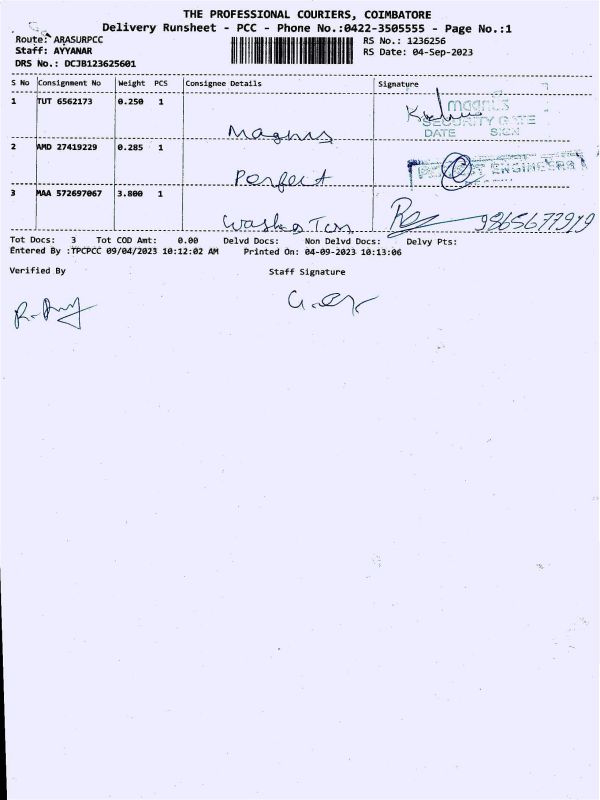 THE PROFESSIONAL COURIERS, COIMBATORE
Delivery Runsheet - PCC - Phone No.:0422-3505555 - Page No.:1
Route: ARASURPCC
RS No.: 1236256
Staff: AYYANAR
RS Date: 04-Sep-2023
DRS No.: DCJB123625601
S No Consignment No Weight PCS Consignee Details Signature
1 TUT 6562173 0.250 1
magnus
SECURITY GATE
Magnus
DATE SIGN
2 AMD 27419229 0.285 1
PERFECT ENGINEERS
Perfect
3 MAA 572697067 3.800 1
9865677919
Tot Docs: 3 Tot COD Amt: 0.00 Delvd Docs: Non Delvd Docs: Delvy Pts:
Entered By :TPCPCC 09/04/2023 10:12:02 AM Printed On: 04-09-2023 10:13:06
Verified By Staff Signature